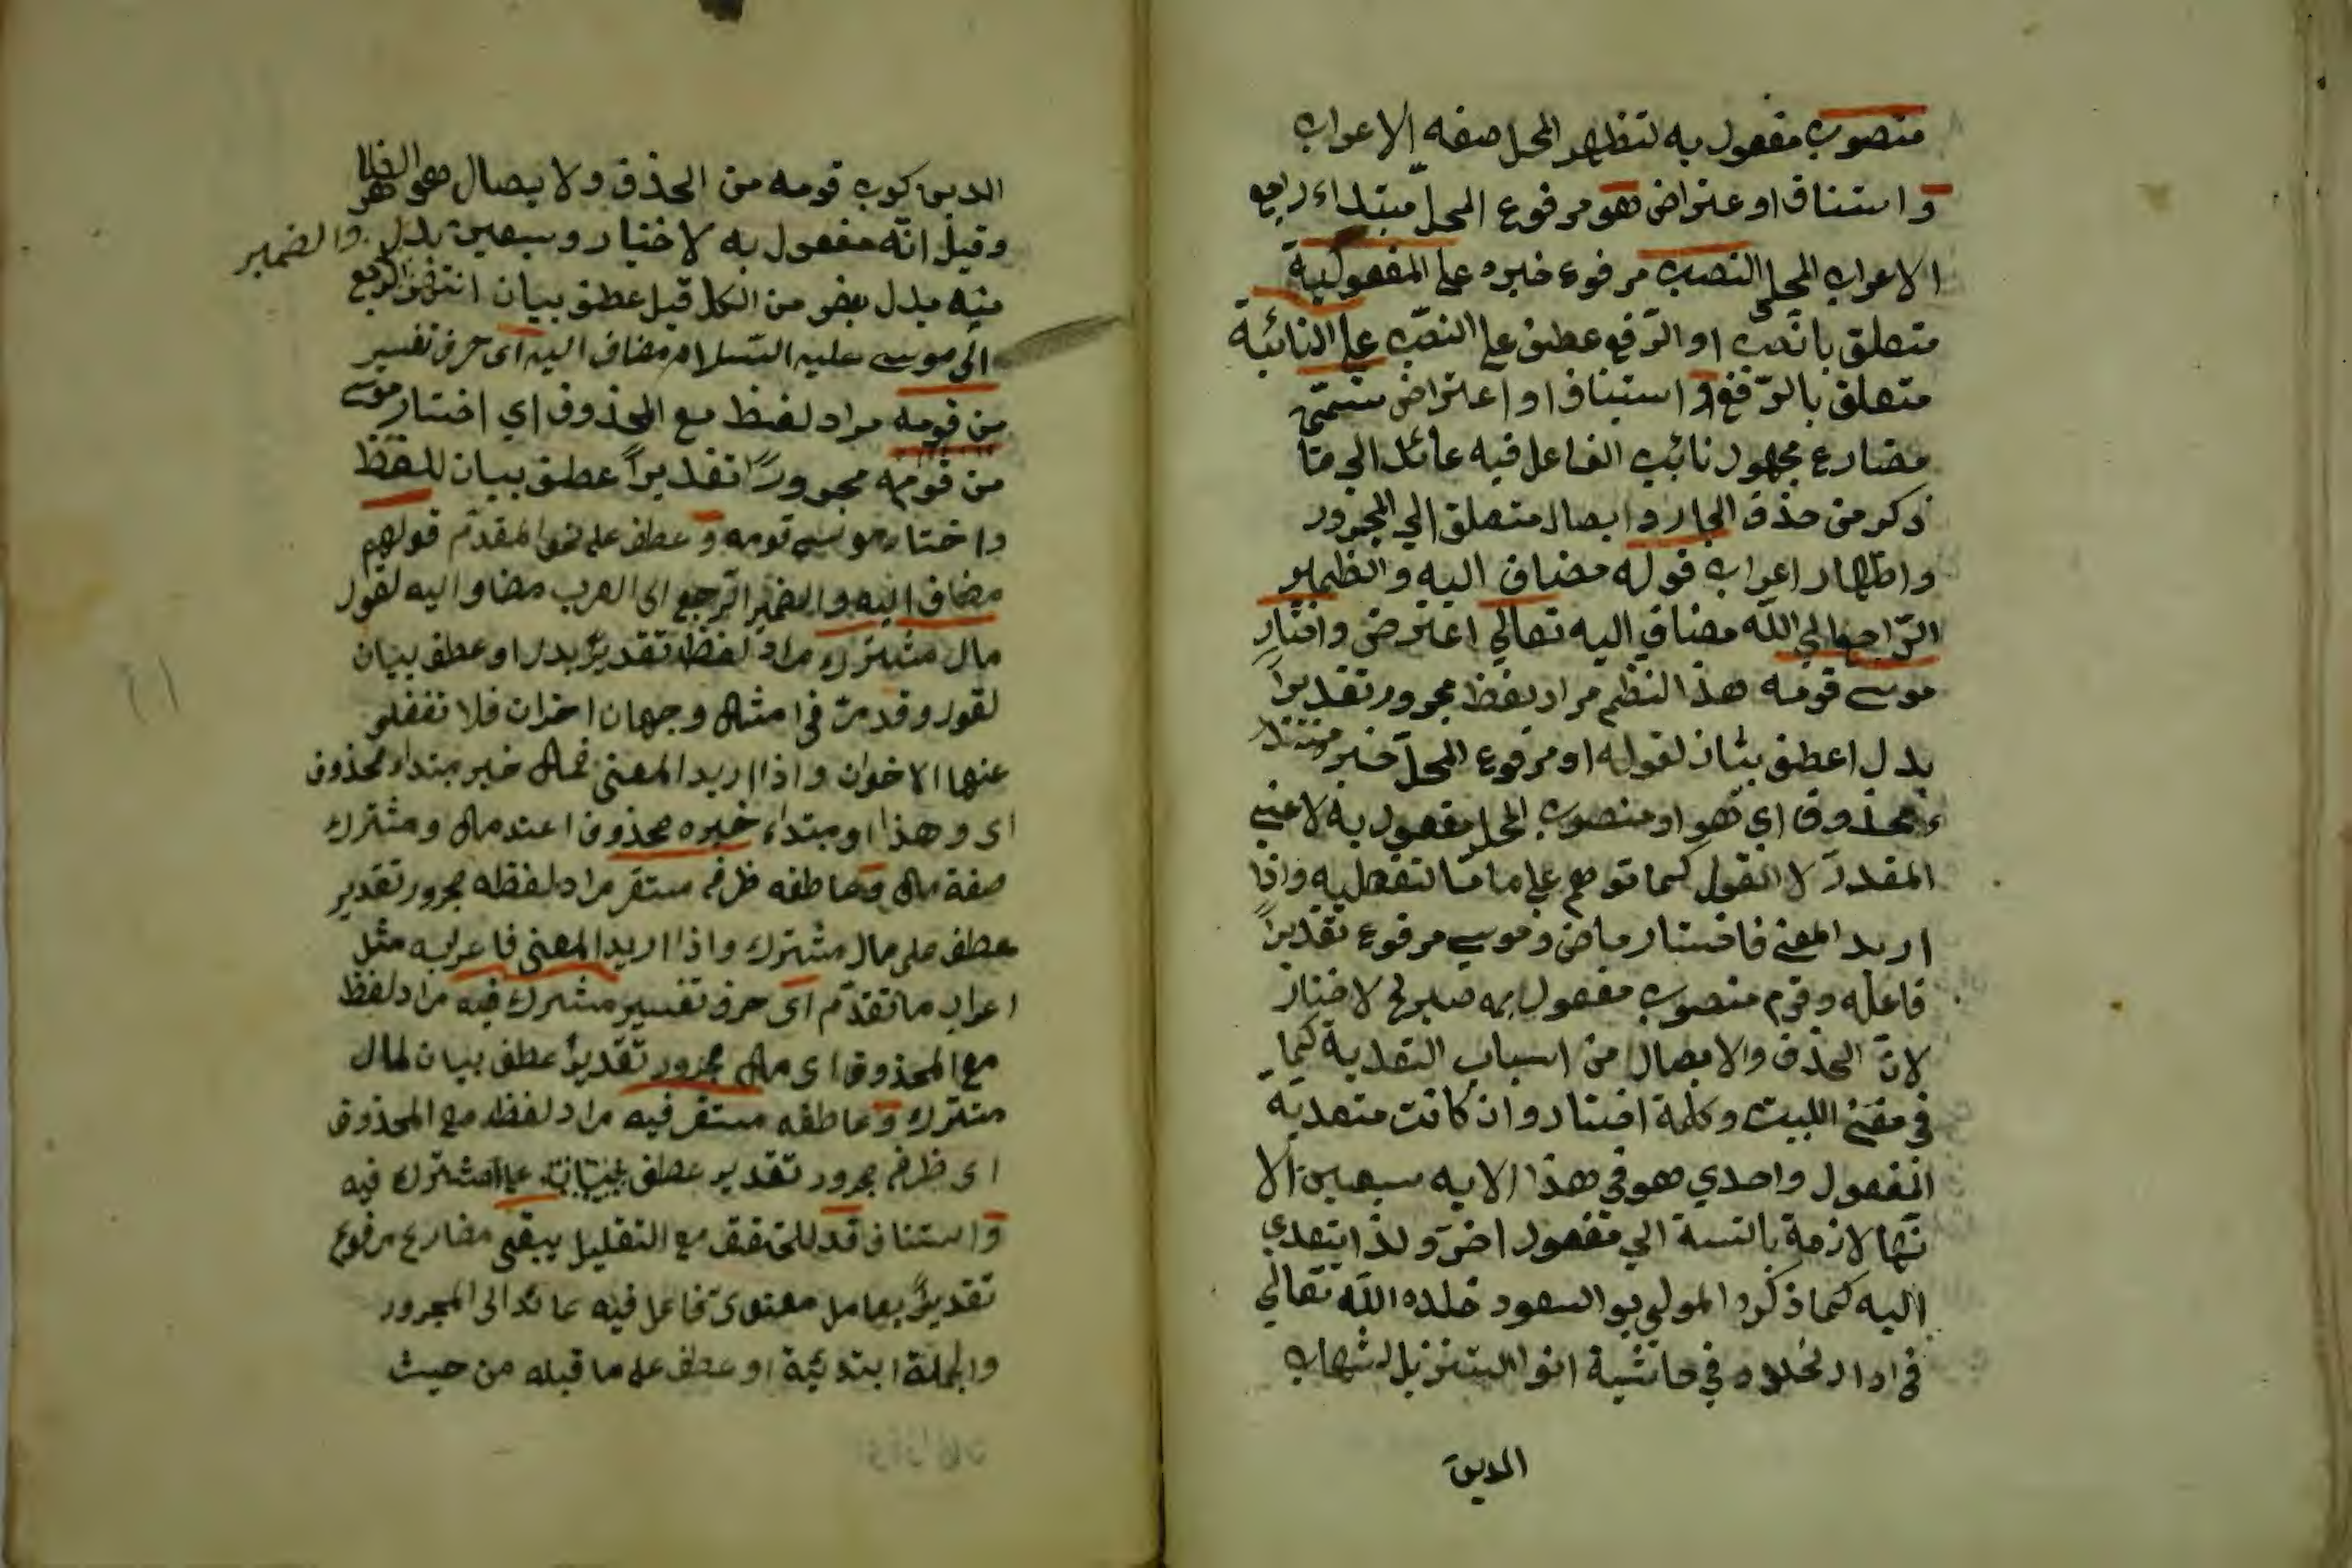 منصوب مفعول به لتظهر المحل صفه الاعراب
و استناف او عتراض هو مرفوع المحل مبتداء راجع
الاعراب المحلى النصب مرفوع خبره على المفعولية
متعلق بانصب او الرفع عطف على النصب على النائبة
متعلق بالرفع و استيناف او اعتراض تسمى
مضارع مجهول نائب الفاعل فيه عائد الى ما
ذكر من حذف الجار و ايصال متعلق الي المجرور
واظهار اعراب قوله مضاف اليه والظمير
الراجع الي الله مضاف اليه تعالي اعترض واختار
موسى قومه هذا النظم مراد لفظ مجرور تقديرا
بدل اعطف بيان لقوله او مرفوع المحل خبر مبتدا
محذوف اي هو او منصوب المحل مفعول به لاعني
المقدر لا القول كما توهم على ما منا تفصليه واذا
اريد المعنى فاختار ماض وموسى مرفوع تقديرا
فاعله وقوم منصوب مفعول به صريح لاختار
لان الحذف والايصال من اسباب التعدية كما
في مغني اللبيب وكلمة اختار وان كانت متعدية
المفعول واحدي هو في هذا الايه سبعين الا
نها لازمة بالنسبة الي مفعول اخر ولذا يتعدي
اليه كما ذكره المولي بو السعود خلده الله تعالي
في ادار لخلود في حاشية انوار التنزيل لشهاب
الدين
الدين كون قومه من الحذف ولا يصال هو
وقيل انه مفعول به لاختيار وسبعين بدل والضمير
منه بدل بعض من الكل قيل عطف بيان الراجع
الى موسى عليه السلام مضاف اليه اى حرف تفسير
من قومه مراد لفظ مع المحذوف اي اختار موسى
من قومه مجرورا تقديرا عطف بيان للفظ
واختار موسى قومه و عطف على نحو المقدم قولهم
مضاف اليه والضمير الراجع الى العرب مضاو اليه لقول
مال مشترك مراد لفظ تقديرا بدل او عطف بيان
لقول وقد مر فى امثال وجهان اخران فلا تغفلو
عنهما الاخوان واذا اريد المعنى فمال خبر مبتداء محذوف
اى وهذا او مبتداء خبره محذوف اعند مال ومشترك
صفة مال و عاطفه ظرف مستقر مراد لفظه مجرور تقدير
عطف على مال مشترك واذا اريد المعنى فاعرابه مثل
اعراب ما تقدم اى حرف تفسير مشترك فيه مراد لفظ
مع المحذوف اى مال مجرور تقديرا عطف بيان لمال
مشترك و عاطفه مستقر فيه مراد لفظه مع المحذوف
اى ظرف مجرور تقدير عطف على مشترك فيه
و استناف قد للتحقق مع التقليل يبقى مضارع مرفوع
تقديرا بعامل معنوى فاعل فيه عائد الى المجرور
والجملة ابتدئية او عطف على ما قبله من حيث